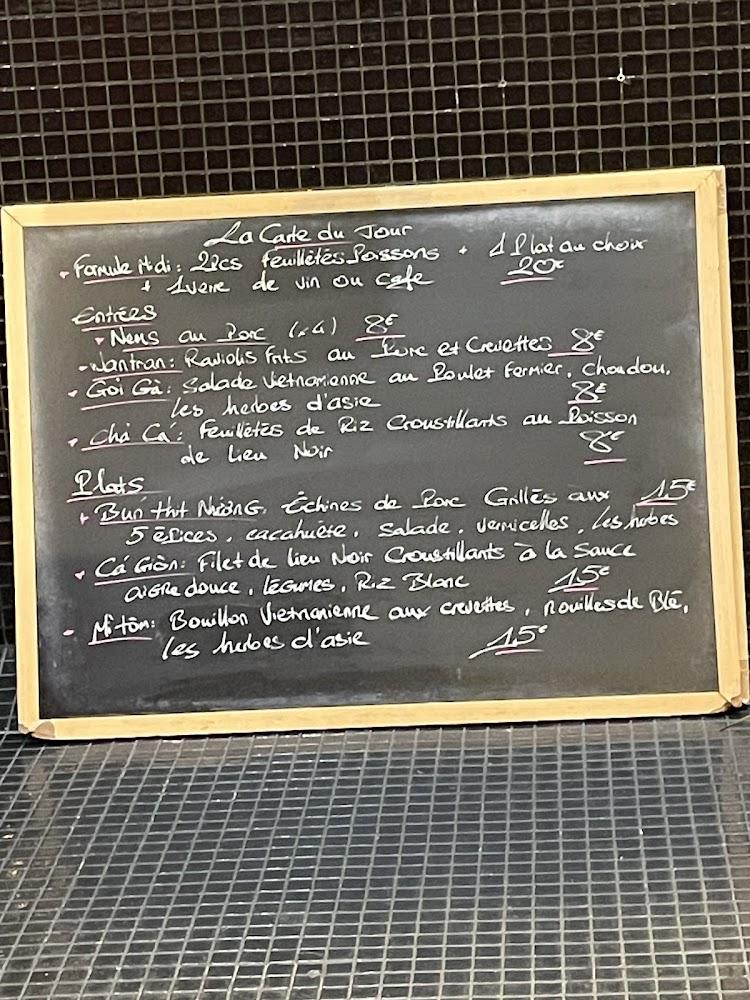 La Carte du Jour
- Formule Midi: 2Pcs feuilletés Poissons + 1 Plat au choix
+ 1 verre de vin ou cafe 20€
Entrées
- Nems au Porc (x4) 8€
- Wantran: Raviolis frits au Porc et Crevettes 8€
- Gỏi Gà: Salade Vietnamienne au Poulet Fermier, Choudou,
les herbes d'asie 8€
- Chả Cá: Feuilletés de Riz Croustillants au Poisson
de lieu Noir 8€
Plats
- Bún thịt Nướng. Échines de Porc Grillés aux 15€
5 épices, cacahuète, salade, vermicelles, les herbes
- Cá Giòn: Filet de lieu Noir Croustillants à la Sauce
aigre douce, légumes, Riz Blanc 15€
- Mì tôm: Bouillon Vietnamienne aux crevettes, nouilles de Blé,
les herbes d'asie 15€